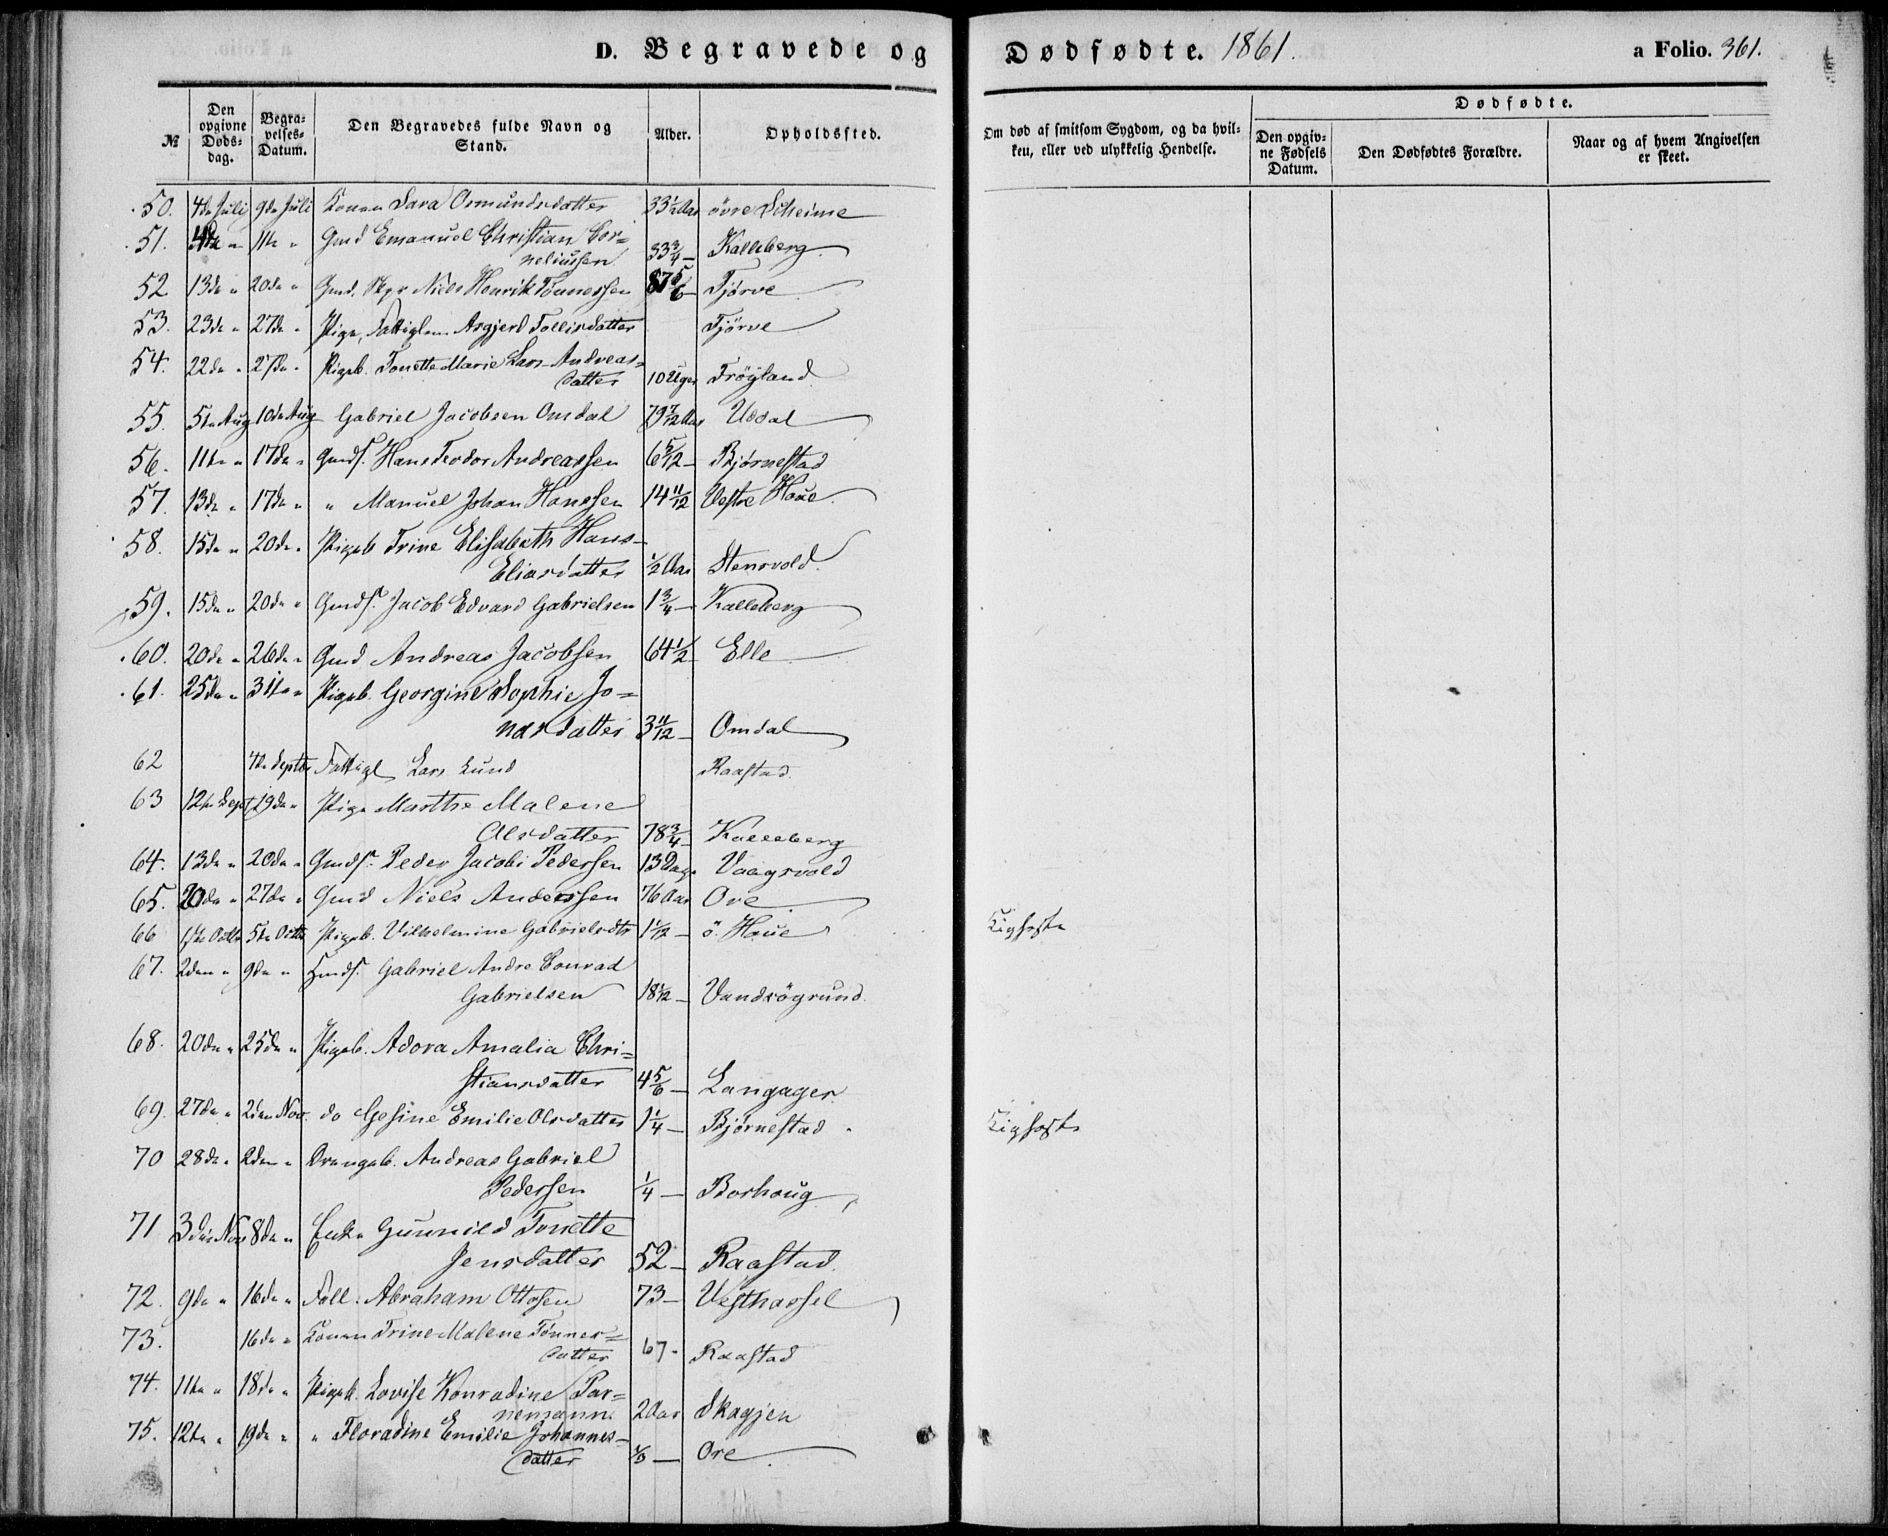 D. Begravede og Dødfødte. 1861. a Folio. 361.
№ Den opgivne Døds-dag. Begra-velses-Datum. Den Begravedes fulde Navn og Stand. Alder. Opholdssted. Om død af smitsom Sygdom, og da hvil-ken, eller ved ulykkelig Hendelse. Dødfødte. Den opgiv-ne Fødsels Datum. Den Dødfødtes Forældre. Naar og af hvem Angivelsen er skeet.
50. 4de Juli 9de Juli Konen Sara Osmundsdatter 33½ Aar övre Skeime
51. 11te " Gmd Emanuel Christian Cor=
neliussen 33¾ — Kalleberg
52 13de " 20de " Gmd. Niels Henrik Tönnessen 87 5/6 — Tjörve
53. 23de " 27de " Pige, Fattiglem Asgjerd Tollisdatter Tjörve
54. 22de " 27de " Pigeb. Tonette Marie Lars Andreas=
datter 10 Uger Tröyland
55. 5te Aug 10de Aug Gabriel Jacobsen Omdal 79 7/12 Aar Uddal
56. 11te " 17de " Gmds. Hans Teodor Andreassen 6 5/12 — Bjørnestad
57. 13de " 17de " " Manuel Johan Hanssen 14 11/12 Vestre Haue
58. 15de " 20de " Pigeb Trine Elisabeth Hans-
Eliasdatter ½ Aar Stensvold.
59. 15de " 20de " Gmds. Jacob Edvard Gabrielsen 1¾ — Kalleberg
60. 20de " 26de " Gmd Andreas Jacobsen 64½ Elle
61. 25de " 31te " Pigeb. Georgine Sophie Jo=
nasdatter 3 11/12 — Omdal
62 4de Septbr Fattigl Lars Lund Raastad.
63 12te Sept 19de " Pige Marthe Malene
Olsdatter 78¾ — Kalleberg
64. 13de " 20de " Gmds. Peder Jacobi Pedersen 13 Dage Vaagsvold
65. 20de " 27de " Gmd Niels Anderssen 76 Aar Ore
66 5te Octb Pigeb. Vilhelmine Gabrielsdtr 1 1/12 — ö. Haue Kighoste
67. 2den " 9de " Gmds. Gabriel Andre Conrad
Gabrielsen 18½ — Vandsögrund.
68. 20de " 25de " Pigeb. Adora Amalia Chri=
stiansdatter 4 5/6 — Langager.
69. 27de " 2den Nov. do Gesine Emilie Olsdatter 1¼ — Bjørnestad Kighoste
70 28de " 2den " Drengeb. Andreas Gabriel
Pedersen ¼ — Borhoug
71 3die Nov 8de " Enke Gunnild Tonette
Jensdatter 52 — Raastad.
72. 9de " 16de " Abraham Ottosen 73 — Vesthassel
73. 16de " Konen Trine Malene Tönnes=
datter 67 - Raastad
74. 11te " 18de " Pigeb. Lovise Konradine Par=
nemann. 2 Aar Skagjen
75. 12te " 19de " " Floradine Emilie Johannes-
datter — Ore